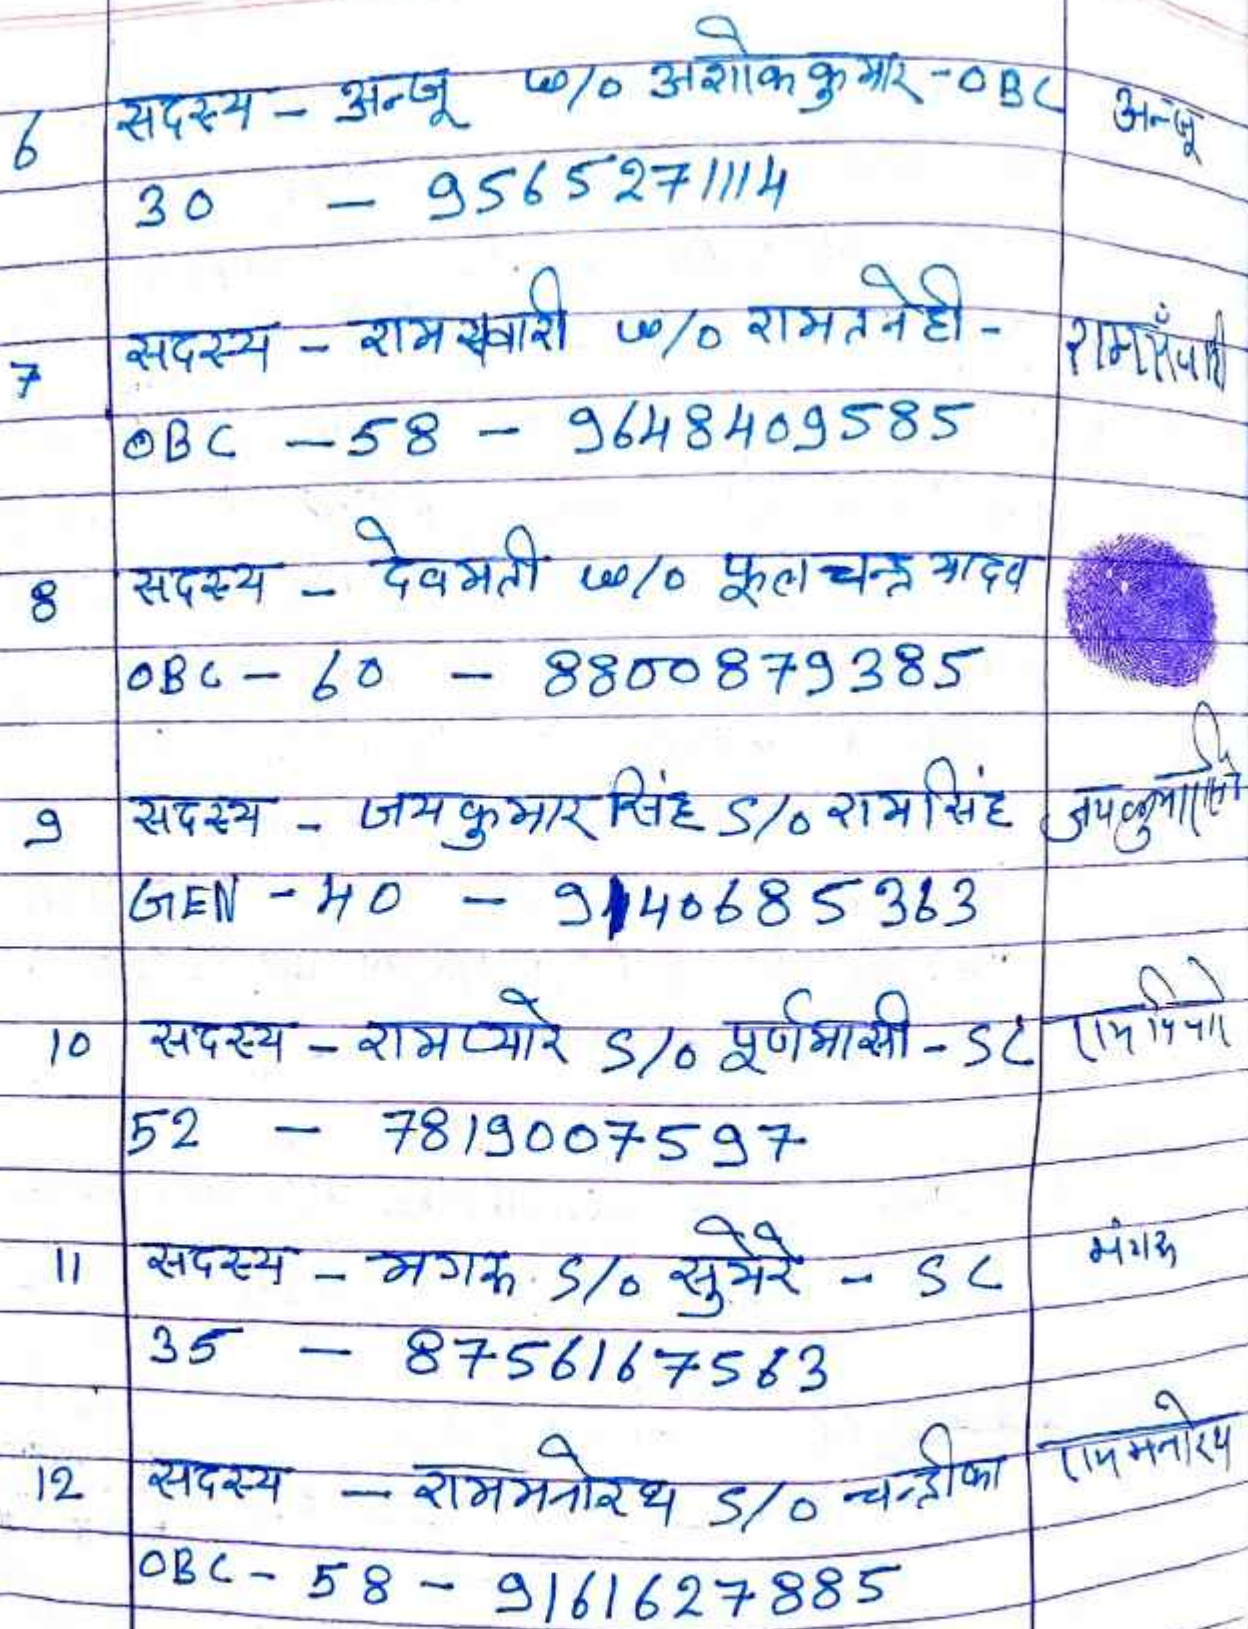 6 सदस्य - अन्जू w/o अशोक कुमार - OBC अन्जू
30 - 9565271114
7 सदस्य - रामसवारी w/o रामतनेही -
OBC - 58 - 9648409585
8 सदस्य - देवमती w/o फूलचन्द्र यादव
OBC - 60 - 8800879385
9 सदस्य - जयकुमार सिंह S/o रामसिंह
GEN - 40 - 9140685363
10 सदस्य - रामप्यारे S/o पूर्णमासी - SC
52 - 7819007597
11 सदस्य - मगरू S/o सुमेरे - SC मंगरू
35 - 8756167563
12 सदस्य - राममनोरथ S/o चन्द्रीका राममनोरथ
OBC - 58 - 9161627885